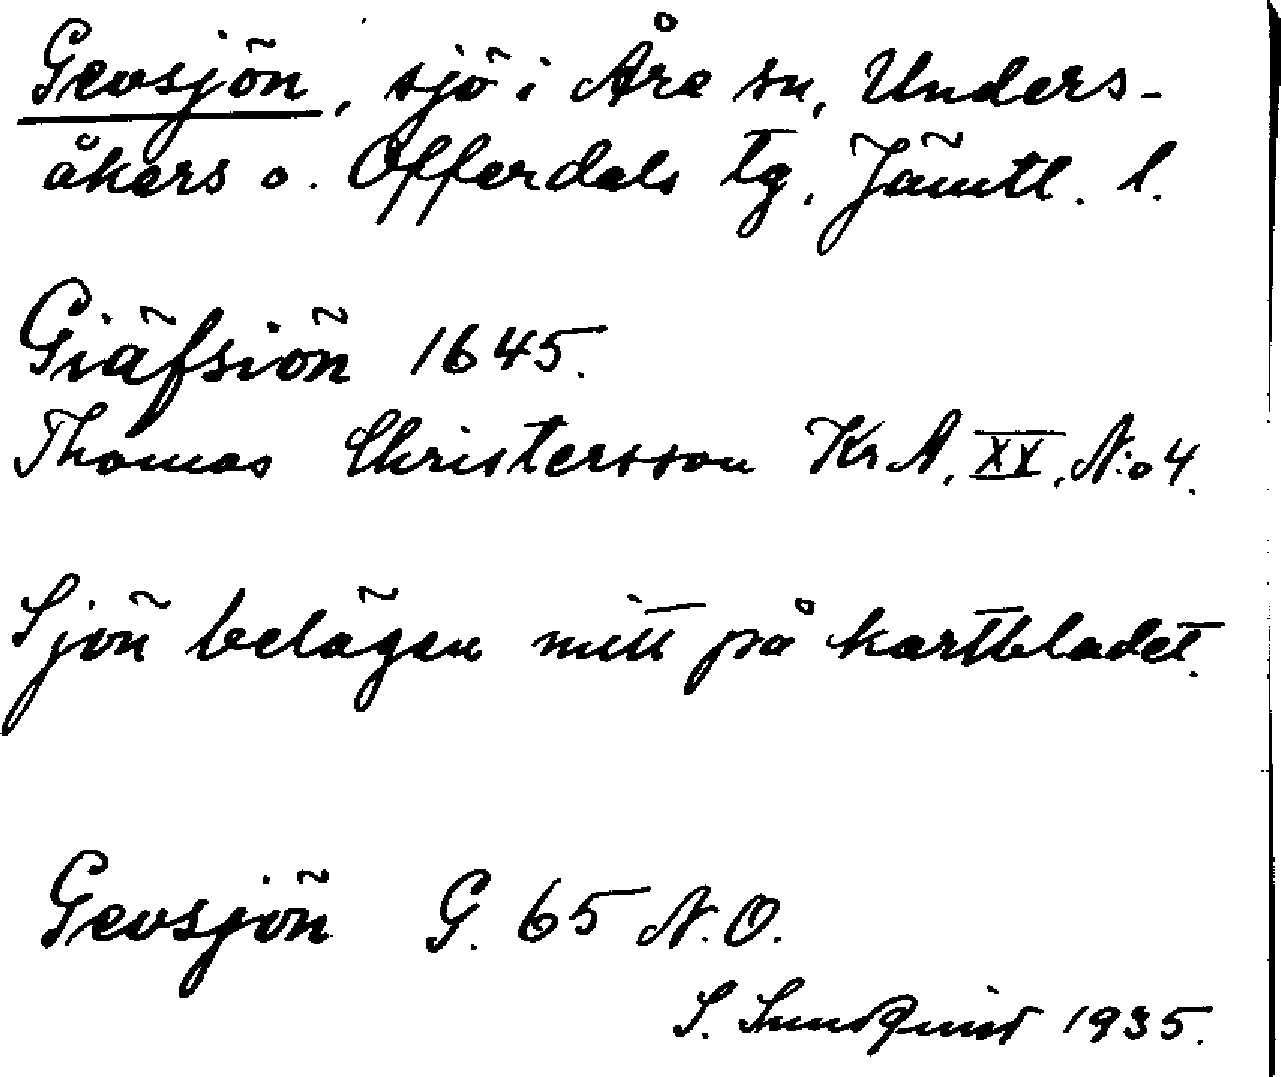 Gevsjön, sjö i Åre sn, Unders-
åkers o. Offerdals tg, Jämtl. l.
Giäfsiön 1645.
Thomas Christersson Kr.A. XX, N:o 4.
Sjön belägen mitt på kartbladet.
Gevsjön G. 65 N.O.
S. Sundquist 1935.